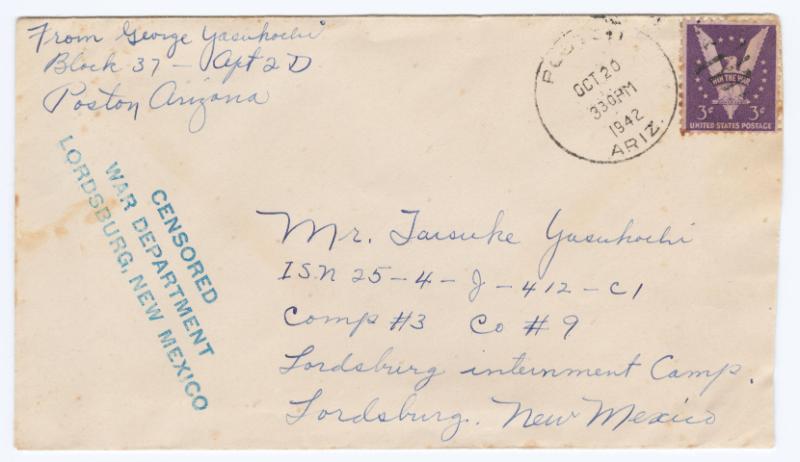 From George Yasukochi
Block 37 - Apt 2D
Poston Arizona
POSTON
OCT 20
330PM
1942
ARIZ.
WIN THE WAR
3¢ 3¢
UNITED STATES POSTAGE
CENSORED
WAR DEPARTMENT
LORDSBURG, NEW MEXICO
Mr. Taisuke Yasukochi
ISN 25-4-J-412-C1
Comp #3 Co #9
Lordsburg internment Camp.
Lordsburg, New Mexico